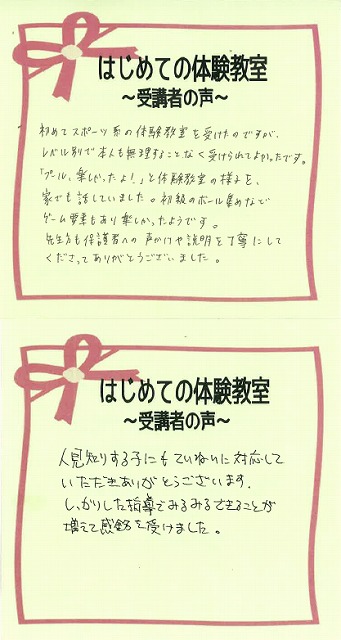 はじめての体験教室
～受講者の声～
初めてスポーツ系の体験教室を受けたのですが、
レベル別で本人も無理することなく受けられてよかったです。
「プール、楽しかったよ！」と体験教室の様子を、
家でも話していました。初級のボール集めなど
ゲーム要素もあり楽しかったようです。
先生方も保護者への声かけや説明を丁寧にして
くださってありがとうございました。
はじめての体験教室
～受講者の声～
人見知りする子にもていねいに対応して
いただきありがとうございます。
しっかりした指導でみるみるできることが
増えて感銘を受けました。